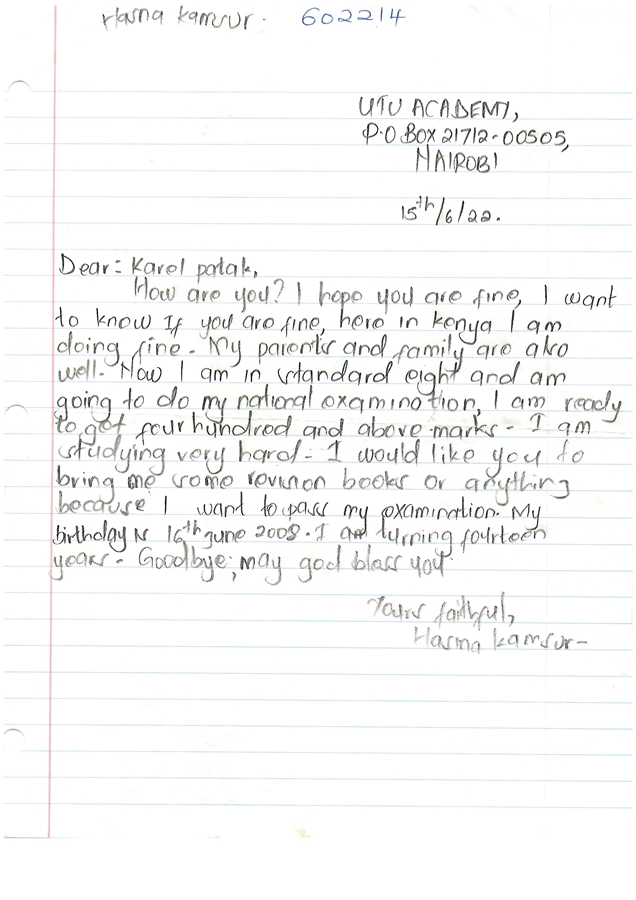 Hasna Kamsur. 602214
UTU ACADEMY,
P.O BOX 21712-00505,
NAIROBI
15th/6/22.
Dear: Karel patak,
How are you? I hope you are fine, I want
to know If you are fine, here in kenya I am
doing fine. My parents and family are also
well. Now I am in standard eight and am
going to do my national examination, I am ready
to get four hundred and above marks - I am
studying very hard - I would like you to
bring me some revision books or anything
because I want to pass my examination. My
birthday is 16th june 2008. I am turning fourteen
years - Goodbye, may god bless you.
Yours faithful,
Hasna Kamsur-